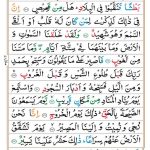 بَطْشًا فَنَقَّبُوا فِي الْبِلَادِ هَلْ مِنْ مَحِيصٍ إِنَّ
فِي ذَٰلِكَ لَذِكْرَىٰ لِمَنْ كَانَ لَهُ قَلْبٌ أَوْ أَلْقَى
السَّمْعَ وَهُوَ شَهِيدٌ وَلَقَدْ خَلَقْنَا السَّمٰوٰتِ
وَالْأَرْضَ وَمَا بَيْنَهُمَا فِي سِتَّةِ أَيَّامٍ وَمَا
مَسَّنَا مِنْ لُغُوبٍ فَاصْبِرْ عَلَىٰ مَا يَقُولُونَ وَسَبِّحْ
بِحَمْدِ رَبِّكَ قَبْلَ طُلُوعِ الشَّمْسِ وَقَبْلَ الْغُرُوبِ
وَمِنَ اللَّيْلِ فَسَبِّحْهُ وَأَدْبَارَ السُّجُودِ وَاسْتَمِعْ
يَوْمَ يُنَادِ الْمُنَادِ مِنْ مَكَانٍ قَرِيبٍ يَوْمَ
يَسْمَعُونَ الصَّيْحَةَ بِالْحَقِّ ذَٰلِكَ يَوْمُ الْخُرُوجِ
إِنَّا نَحْنُ نُحْيِي وَنُمِيتُ وَإِلَيْنَا الْمَصِيرُ يَوْمَ